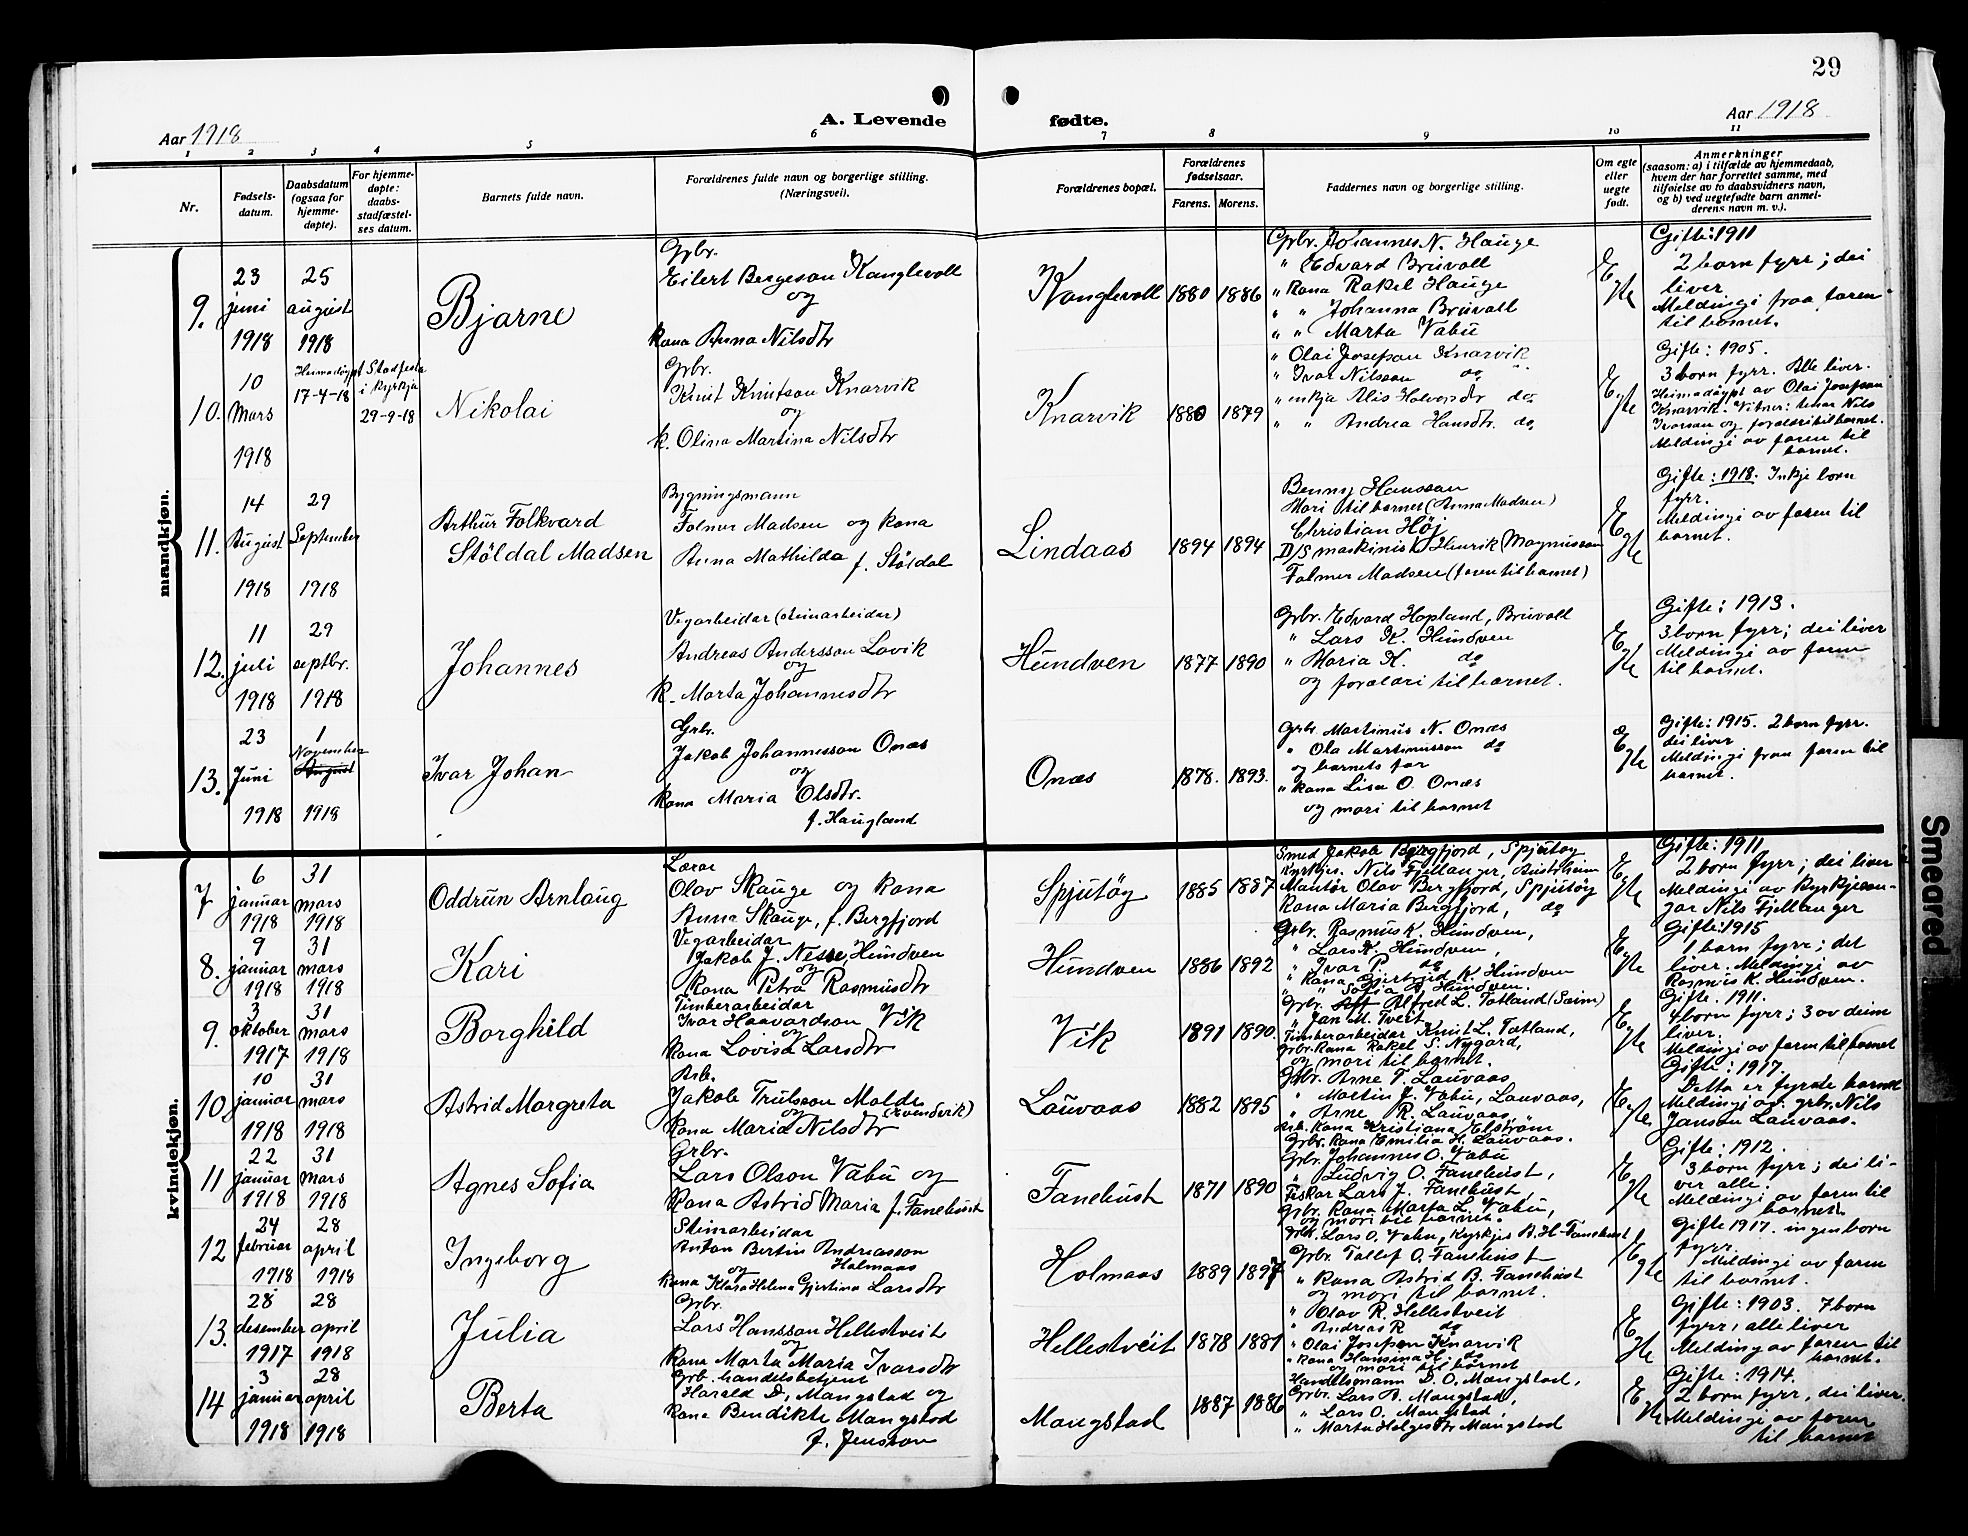 29
Aar 1918
A. Levende fødte.
Aar 1918
1 2 3 4 5 6 7 8 9 10 11
Nr.
Fødsels-
datum.
Daabsdatum
(ogsaa for
hjemme-
døpte).
For hjemme-
døpte:
daabs-
stadfæstel-
ses datum.
Barnets fulde navn.
Forældrenes fulde navn og borgerlige stilling.
(Næringsvei).
Forældrenes bopæl.
Forældrenes
fødselsaar.
Farens. Morens.
Faddernes navn og borgerlige stilling.
Om egte
eller
uegte
født.
Anmerkninger
(saasom: a) i tilfælde av hjemmedaab,
hvem der har forrettet samme, med
tilføielse av to daabsvidners navn,
og b) ved uegtefødte barn anmel-
derens navn m. v.).
mandkjøn.
9.
23
juni
1918
25
august
1918
Bjarne
Grbr.
Eilert Bergeson Kanglevoll
og
kona Anna Nilsdtr
Kanglevoll
1880 1886
Grbr. Johannes N. Hauge
" Edvard Bruvoll
" Kona Rakel Hauge
" " Johanna Bruvoll
" " Marta Vabu
Egte
Gifte: 1911
2 born fyrr; dei
liver
Meldingi fraa faren
til barnet.
10.
10
Mars
1918
Heimadøypt
17-4-18
Stadfesta
i Kyrkja
29-9-18
Nikolai
Grbr.
Knut Knutson Knarvik
og
k. Olina Martina Nilsdtr
Knarvik
1880 1879
" Olai Josefson Knarvik
" Ivar Nilsson do
" enkja Alis Halvorsdtr do
" " Andrea Hansdtr. do
Egte
Gifte: 1905.
3 born fyrr. Alle liver.
Heimadøypt av Olai Josefson
Knarvik. Vitner: tenar Nils
Ivarson og foreldri til barnet.
Meldingi av faren til
barnet.
11.
14
August
1918
29
September
1918
Arthur Folkvard
Støldal Madsen
Bygningsmann
Folmer Madsen og kona
Anna Mathilda f. Støldal
Lindaas
1894 1894
Benny Hansson
Mori til barnet (Anna Madsen)
Christian Høj
D/S maskinist Henrik Magnusson
Folmer Madsen (faren til barnet)
Egte
Gifte: 1918. Inkje born
fyrr.
Meldingi av faren til
barnet.
12.
11
juli
1918
29
septbr.
1918
Johannes
Vegarbeidar (steinarbeidar)
Andreas Andersson Lavik
og
k. Marta Johannesdtr
Hundven
1877 1890
Grbr. Edvard Hopland, Bruvoll
" Lars K. Hundven
" Maria K. do
og foreldri til barnet.
Egte
Gifte: 1913.
3 born fyrr; dei liver
Meldingi av faren
til barnet.
13.
23
Juni
1918
1
November
August
1918
Ivar Johan
Grbr.
Jakob Johannesson Onæs
og
kona Maria Olsdtr.
f. Haugland
Onæs
1878. 1893.
Grbr. Martinus N. Onæs
" Ola Martinusson do
og barnets far
" kona Lisa O. Onæs
og mori til barnet
Egte
Gifte: 1915. 2 born fyrr.
dei liver
Meldingi fraa faren til
barnet.
kvindekjøn.
7
6
januar
1918
31
mars
1918
Oddrun Arnlaug
Lærar
Olav Skauge og kona
Anna Skauge, f. Bergfjord
Spjutøy
1885 1887
Smed Jakob Bergfjord, Spjutøy
Kyrkjes. Nils Fjellanger, Austrheim
Maritør Olav Bergfjord, Spjutøy
Kona Maria Bergfjord, do
Egte
Gifte: 1911
2 born fyrr; dei liver
Meldingi av Kyrkjeson-
gar Nils Fjellanger
8.
9
januar
1918
31
mars
1918
Kari
Vegarbeidar
Jakob J. Nesse, Hundven
og
kona Petra Rasmusdtr
Hundven
1886 1892
Grbr. Rasmus K. Hundven,
" Lars K. Hundven,
" Ivar P. do
" Kona Gjertrud K. Hundven
" " Sofia R. Hundven.
Egte
Gifte: 1915
1 barn fyrr; det
liver. Meldingi av
Rasmus K. Hundven.
9.
3
oktober
1917
31
mars
1918
Borghild
Timberarbeidar
Ivar Haavardson Vik
og
kona Lovisa Larsdtr
Vik
1891 1890.
Grbr. Alfred L. Totland (Seim)
" Jan M. Tveit
Timberarbeidar Knut L. Totland,
Grbr. Kona Rakel S. Nygard,
og mori til barnet.
Egte
Gifte. 1911.
4 born fyrr; 3 av deim
liver.
Meldingi av faren til barnet
10
10
januar
1918
31
mars
1918
Astrid Margreta
Arb.
Jakob Trulsson Molde
og
kona Maria Nilsdtr
Lauvaas
1882 1895
Grbr. Arne T. Lauvaas
" Martin J. Vabu, Lauvaas,
" Arne R. Lauvaas, "
Arb. kona Kristiana Elstrøm
Grbr. kona Emilia H. Lauvaas.
Egte
Gifte: 1917.
Detta er fyrste barnet
Meldingi av grbr. Nils
Janson Lauvaas.
11
22
januar
1918
31
mars
1918
Agnes Sofia
Grbr.
Lars Olson Vabu og
kona Astrid Maria f. Fanebust
Fanebust
1871 1890
Grbr. Johannes O. Vabu
" Ludvig O. Fanebust,
Fiskar Lars J. Fanebust,
Grbr. Kona Marta L. Vabu,
og mori til barnet.
Egte
Gifte: 1912.
3 born fyrr; dei li-
ver alle.
Meldingi av faren til
barnet.
12
24
februar
1918
28
april
1918
Ingeborg
Steinarbeidar
Anton Bertin Andreasson
Holmaas
og
kona Klara Helena Gjertina Larsdtr
Holmaas
1889 1897
Grbr. Lars O. Vabu, Kyrkjes. A. H. Fanebust
Grbr. Tollef O. Fanebust
" Kona Astrid B. Fanebust
og mori til barnet.
Egte
Gifte 1917. ingen born
fyrr.
Meldingi av faren
til barnet.
13.
28
desember
1917
28
april
1918
Julia
Grbr.
Lars Hansson Hellestveit
og
kona Marta Maria Ivarsdtr
Hellestveit
1878 1881
" Olav R. Hellestveit
" Andreas R do
" Olai Josefson Knarvik
" kona Hansina H. do
og mori til barnet
Egte
Gifte: 1903. 7 born
fyrr, alle liver
Melding av faren til
barnet.
14
3
januar
1918
28
april
1918
Berta
Grb. handelsbetjent
Harald D. Mangstad og
kona Bendikte Mangstad
f. Jensson
Mangstad
1887 1886
Handelsmann D. O. Mangstad,
Grbr. Lars D. Mangstad,
" Lars O. Mangstad,
" Marta Helgesdtr Mangstad
Egte
Gifte: 1914.
2 born fyrr, dei liver.
Meldingi av faren
til barnet
Smeared